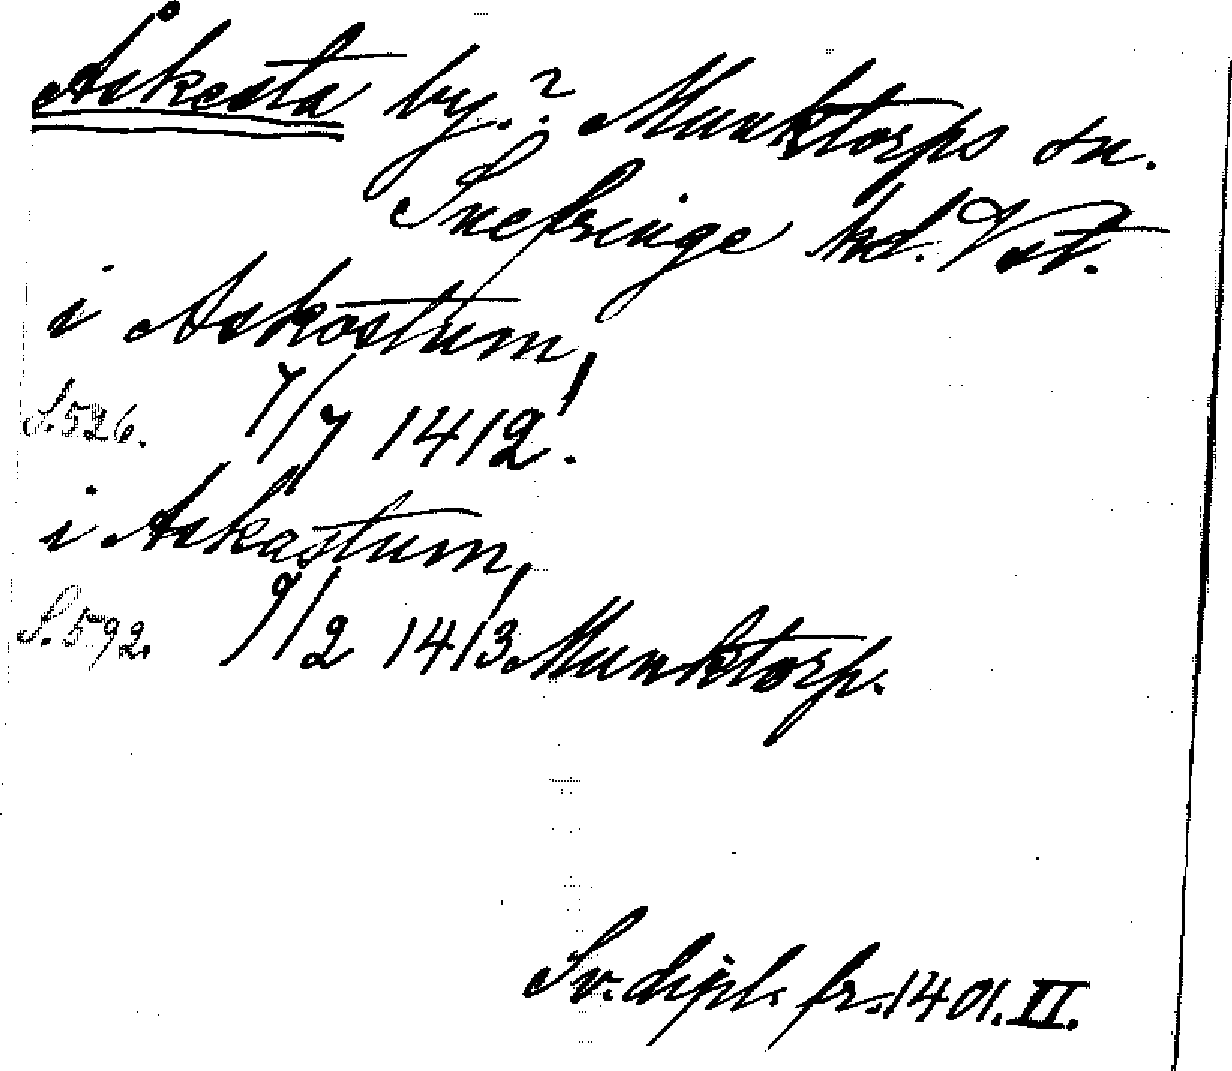 Åskesta by.? Munktorps sn.
Snefringe hd. Vst.
i Askastum,
S. 526. 7/7 1412!
i Askastum,
S. 592. 9/2 1413 Munktorp.
Sv. dipl. fr. 1401. II.